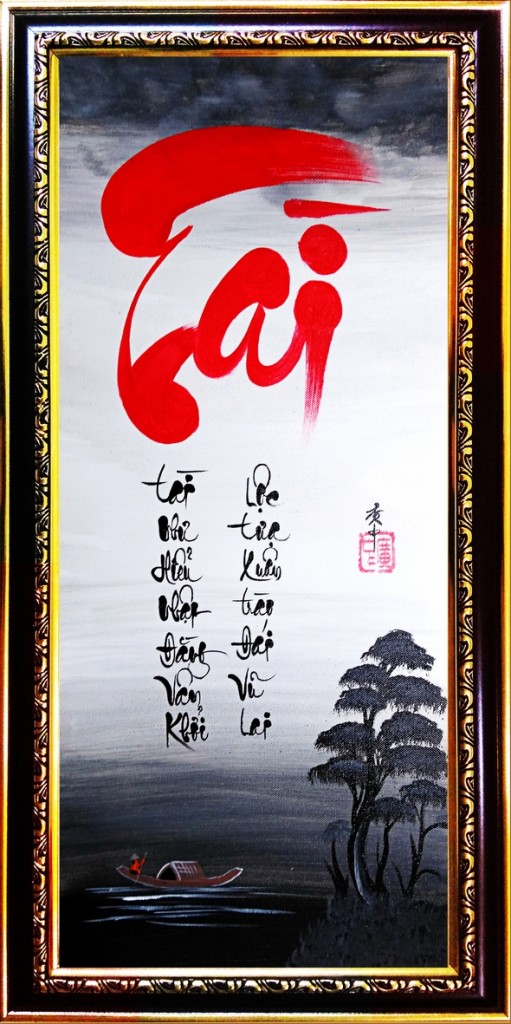 Tài
Tài Như Hiểu Nhật Đằng Vân Khởi
Lộc Tựa Xuân trào Đái Vũ Lai